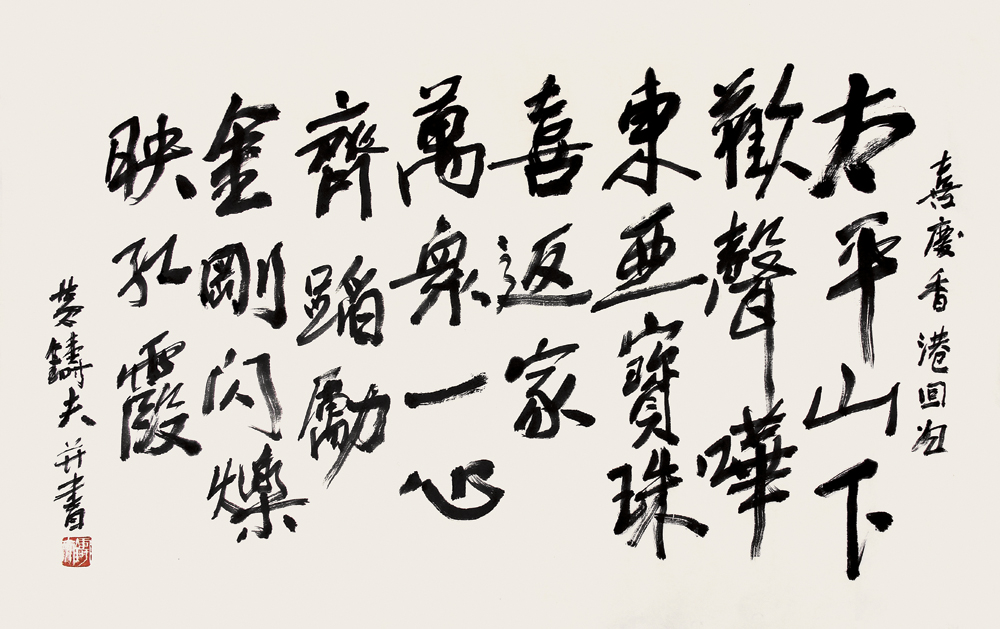 喜慶香港回归
太平山下
歡聲嘩
東亞寶珠
喜返家
萬眾一心
齊蹈勵
金剛閃爍
映紅霞
黄鑄夫并書